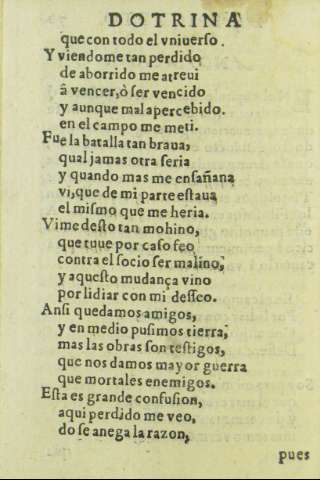 DOTRINA
que con todo el vniuerſo.
Y viendome tan perdido
de aborrido me atreui
â vencer, ò ſer vencido
y aunque mal apercebido.
en el campo me meti.
Fue la batalla tan braua,
qual jamas otra ſeria
y quando mas me enſañaua
vi, que de mi parte eſtaua
el miſmo que me heria.
Vime deſto tan mohino,
que tuue por caſo feo
contra el ſocio ſer malino,
y aqueſto mudança vino
por lidiar con mi deſſeo.
Anſi quedamos amigos,
y en medio puſimos tierra,
mas las obras ſon teſtigos,
que nos damos mayor guerra
que mortales enemigos.
Eſta es grande confuſion,
aqui perdido me veo,
do ſe anega la razon,
pues